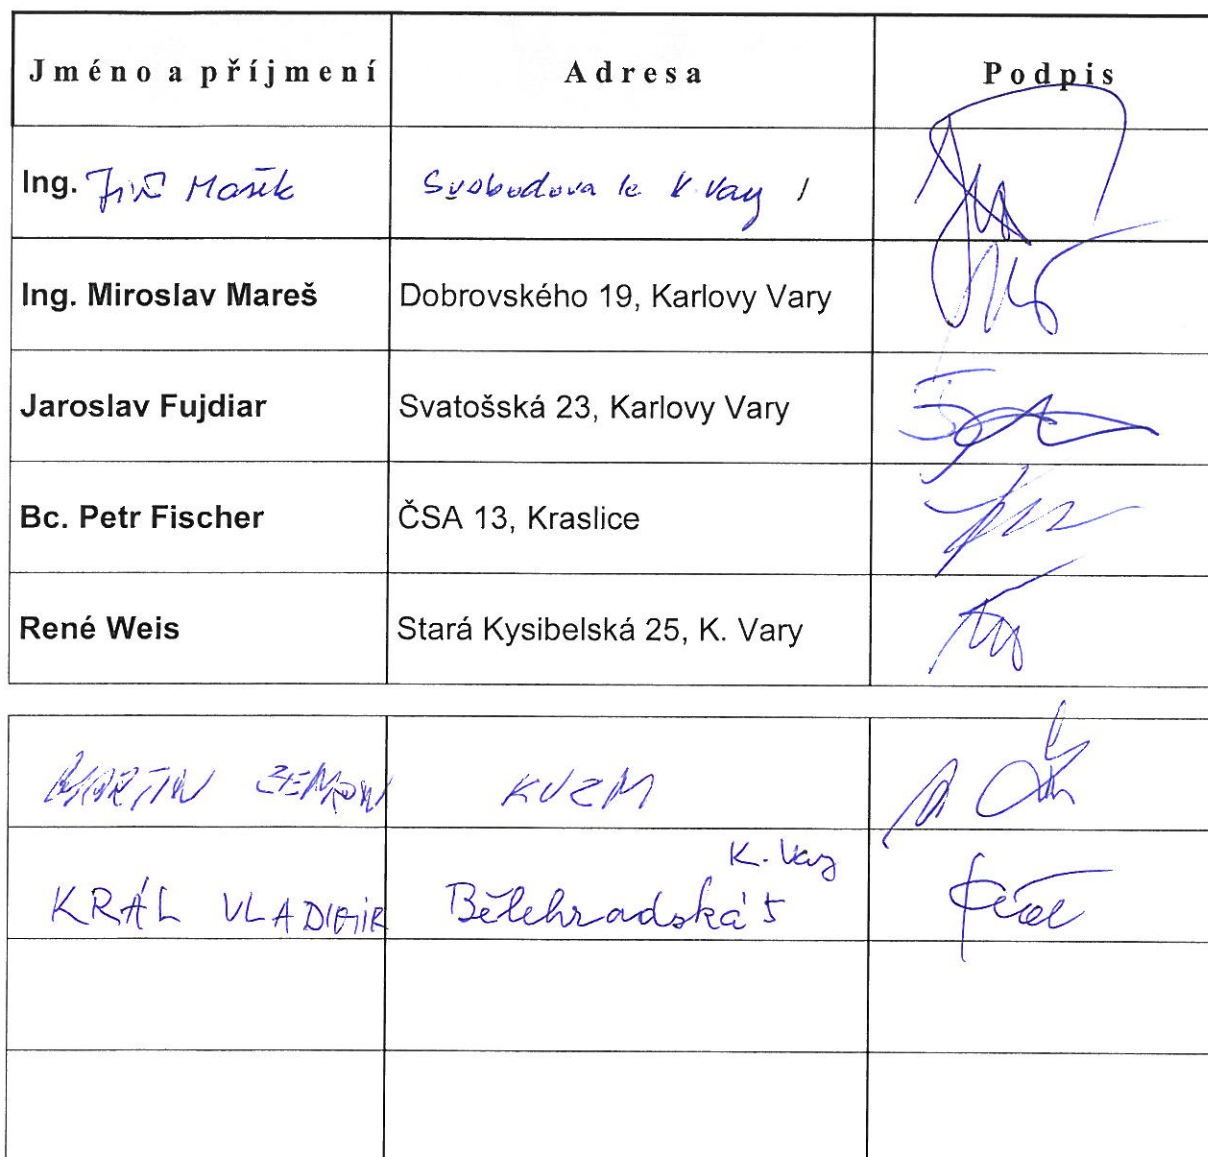 Jméno a příjmení Adresa Podpis
Ing. Jiří Mašík Svobodova K. Vary
Ing. Miroslav Mareš Dobrovského 19, Karlovy Vary
Jaroslav Fujdiar Svatošská 23, Karlovy Vary
Bc. Petr Fischer ČSA 13, Kraslice
René Weis Stará Kysibelská 25, K. Vary
MARTIN KVZM
K. Vary
KRÁL VLADIMIR Bělehradská 5 Král